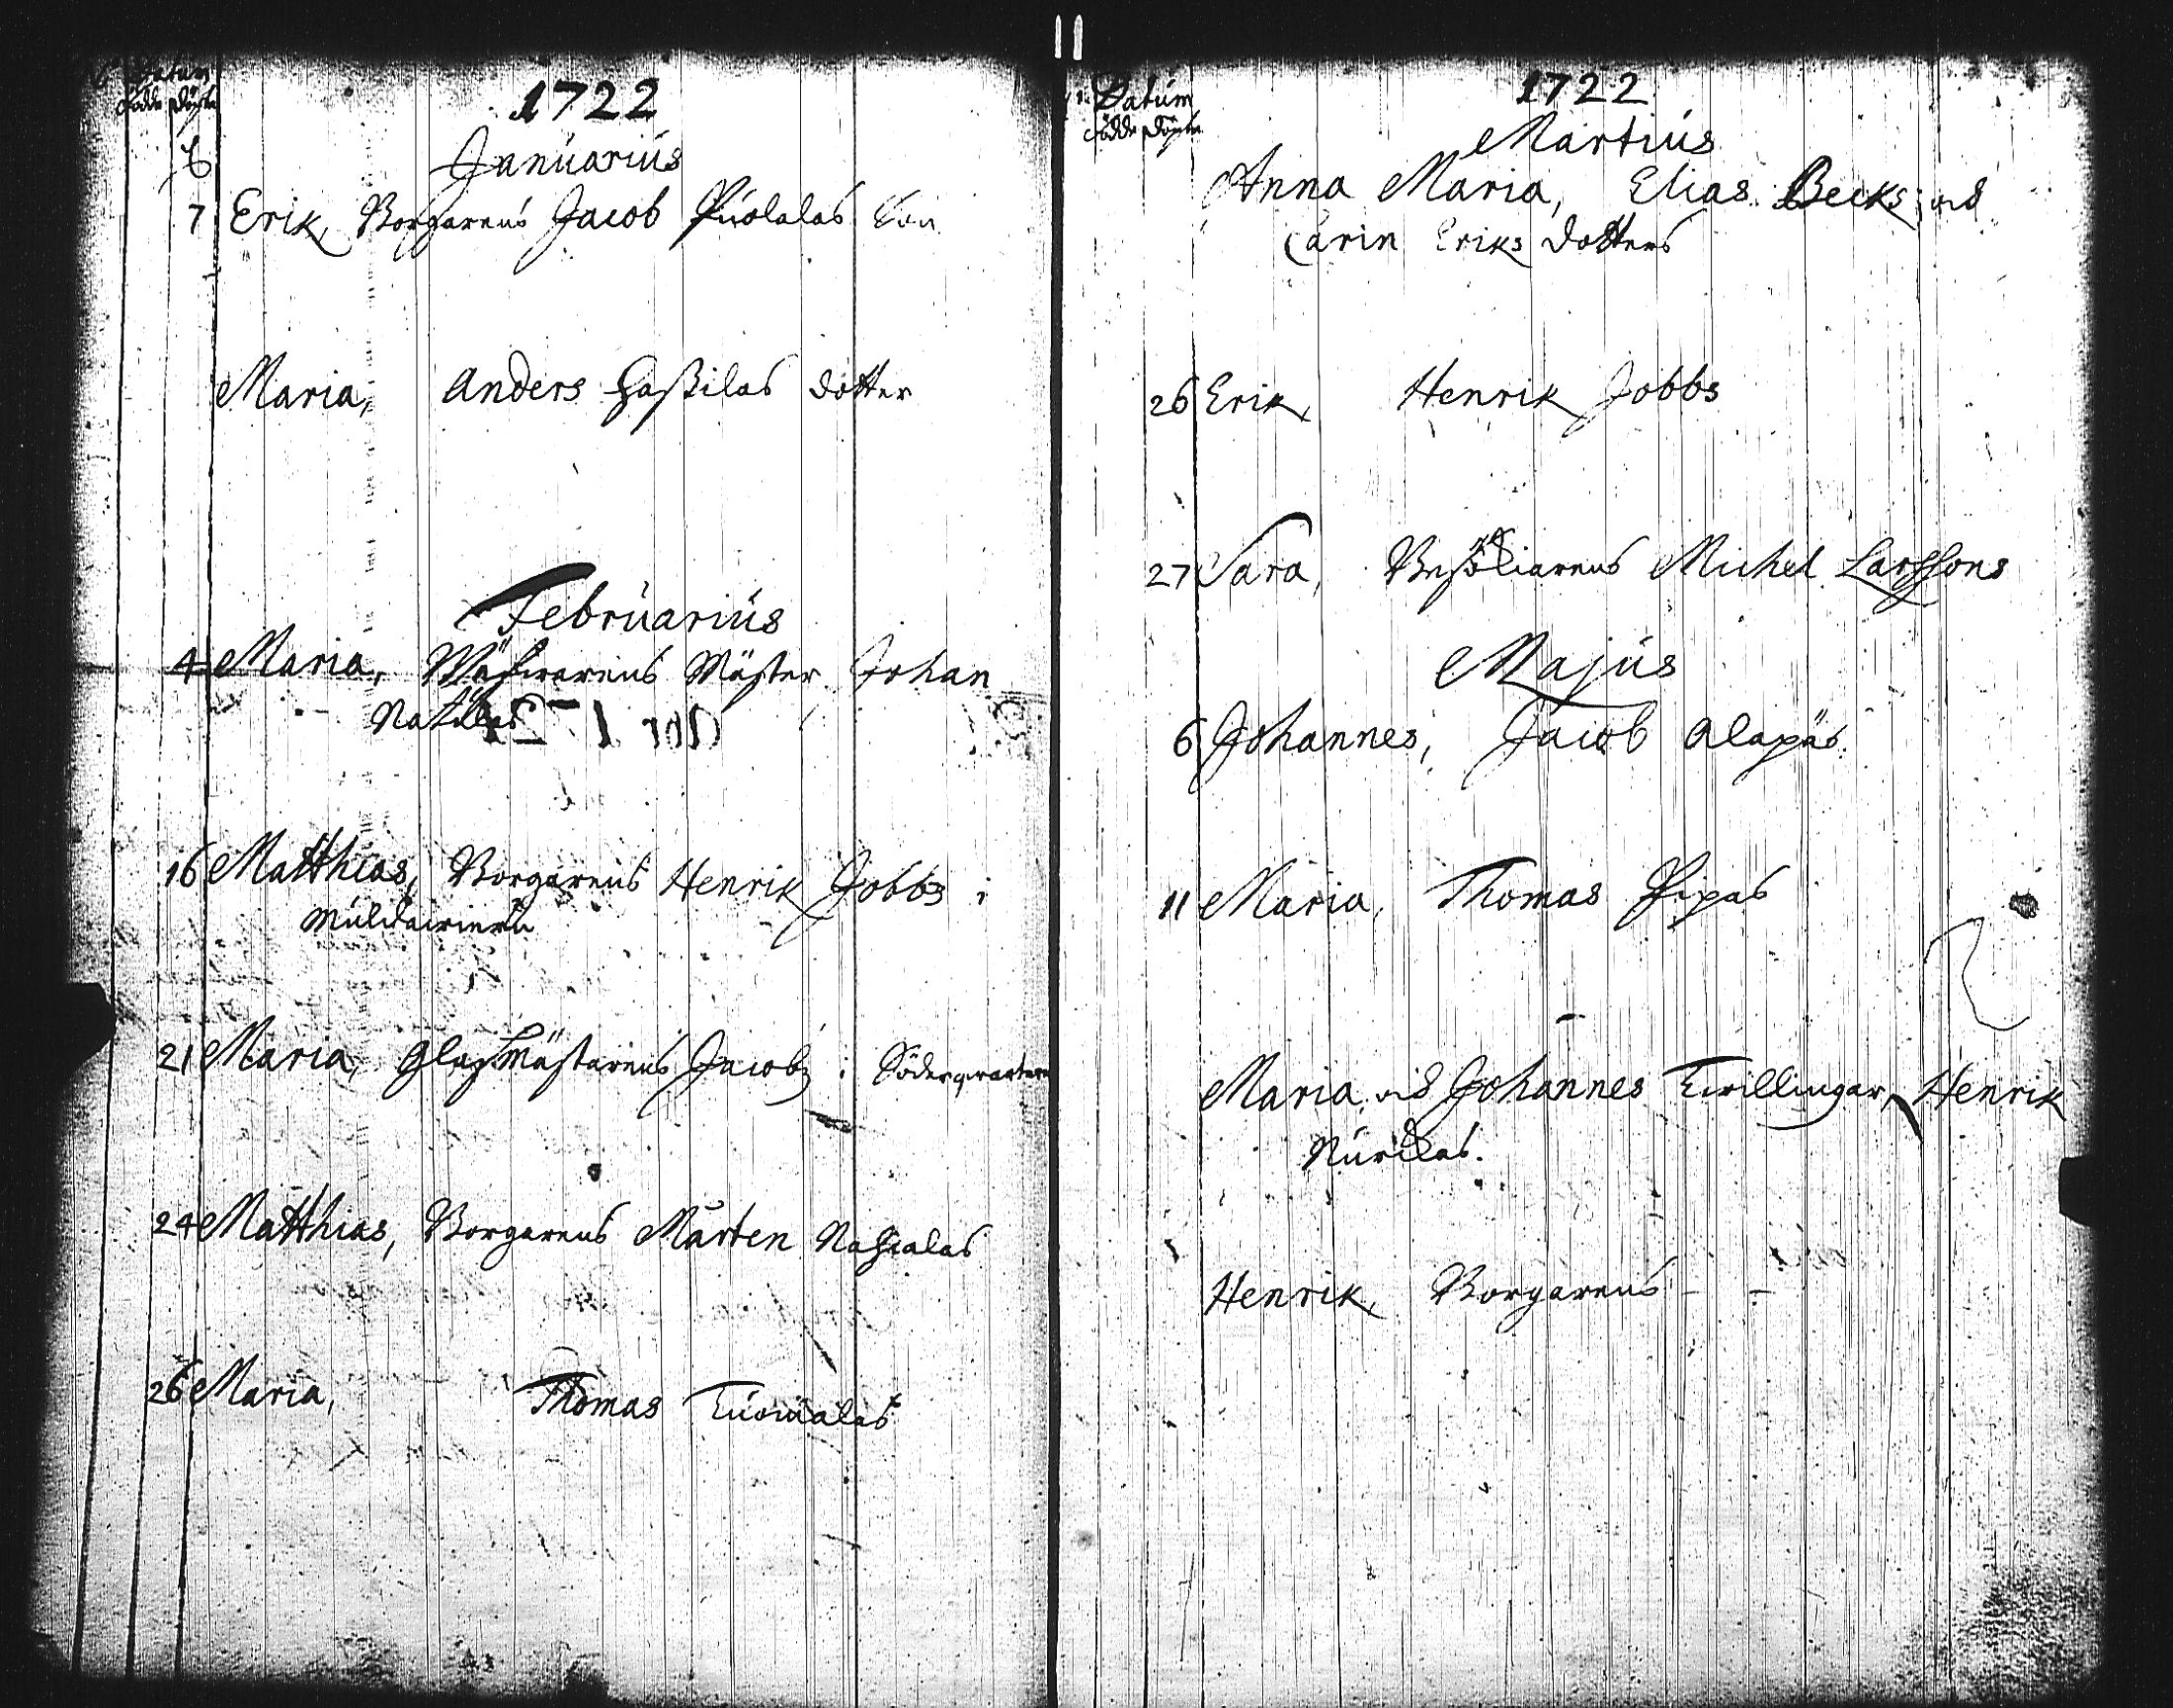 Datum
födde döpte
1722
Januarius
7 Erik, Borgarens Jacob Puolalas Son
Maria, Anders Haßilas dotter
Februarius
4 Maria, Mäster Johan
Matthias, Borgarens Henrik Jobbs i
16
21 Maria, Glasmästarens Jacobs i Söderqvarteret
24 Matthias, Borgarens Mårten
26 Maria, Thomas Tuomalas
Datum
födde döpte
1722
Martius
Anna Maria, Elias Becks och
Carin Eriks dotters
26 Erik, Henrik Jobbs
27 Sara, Besökiarens Michel Larssons
Majus
6 Johannes, Jacob Alapäs
11 Maria, Thomas Pipas
Maria och Johannes Tvillingar, Henrik
Henrik, Borgarens - -